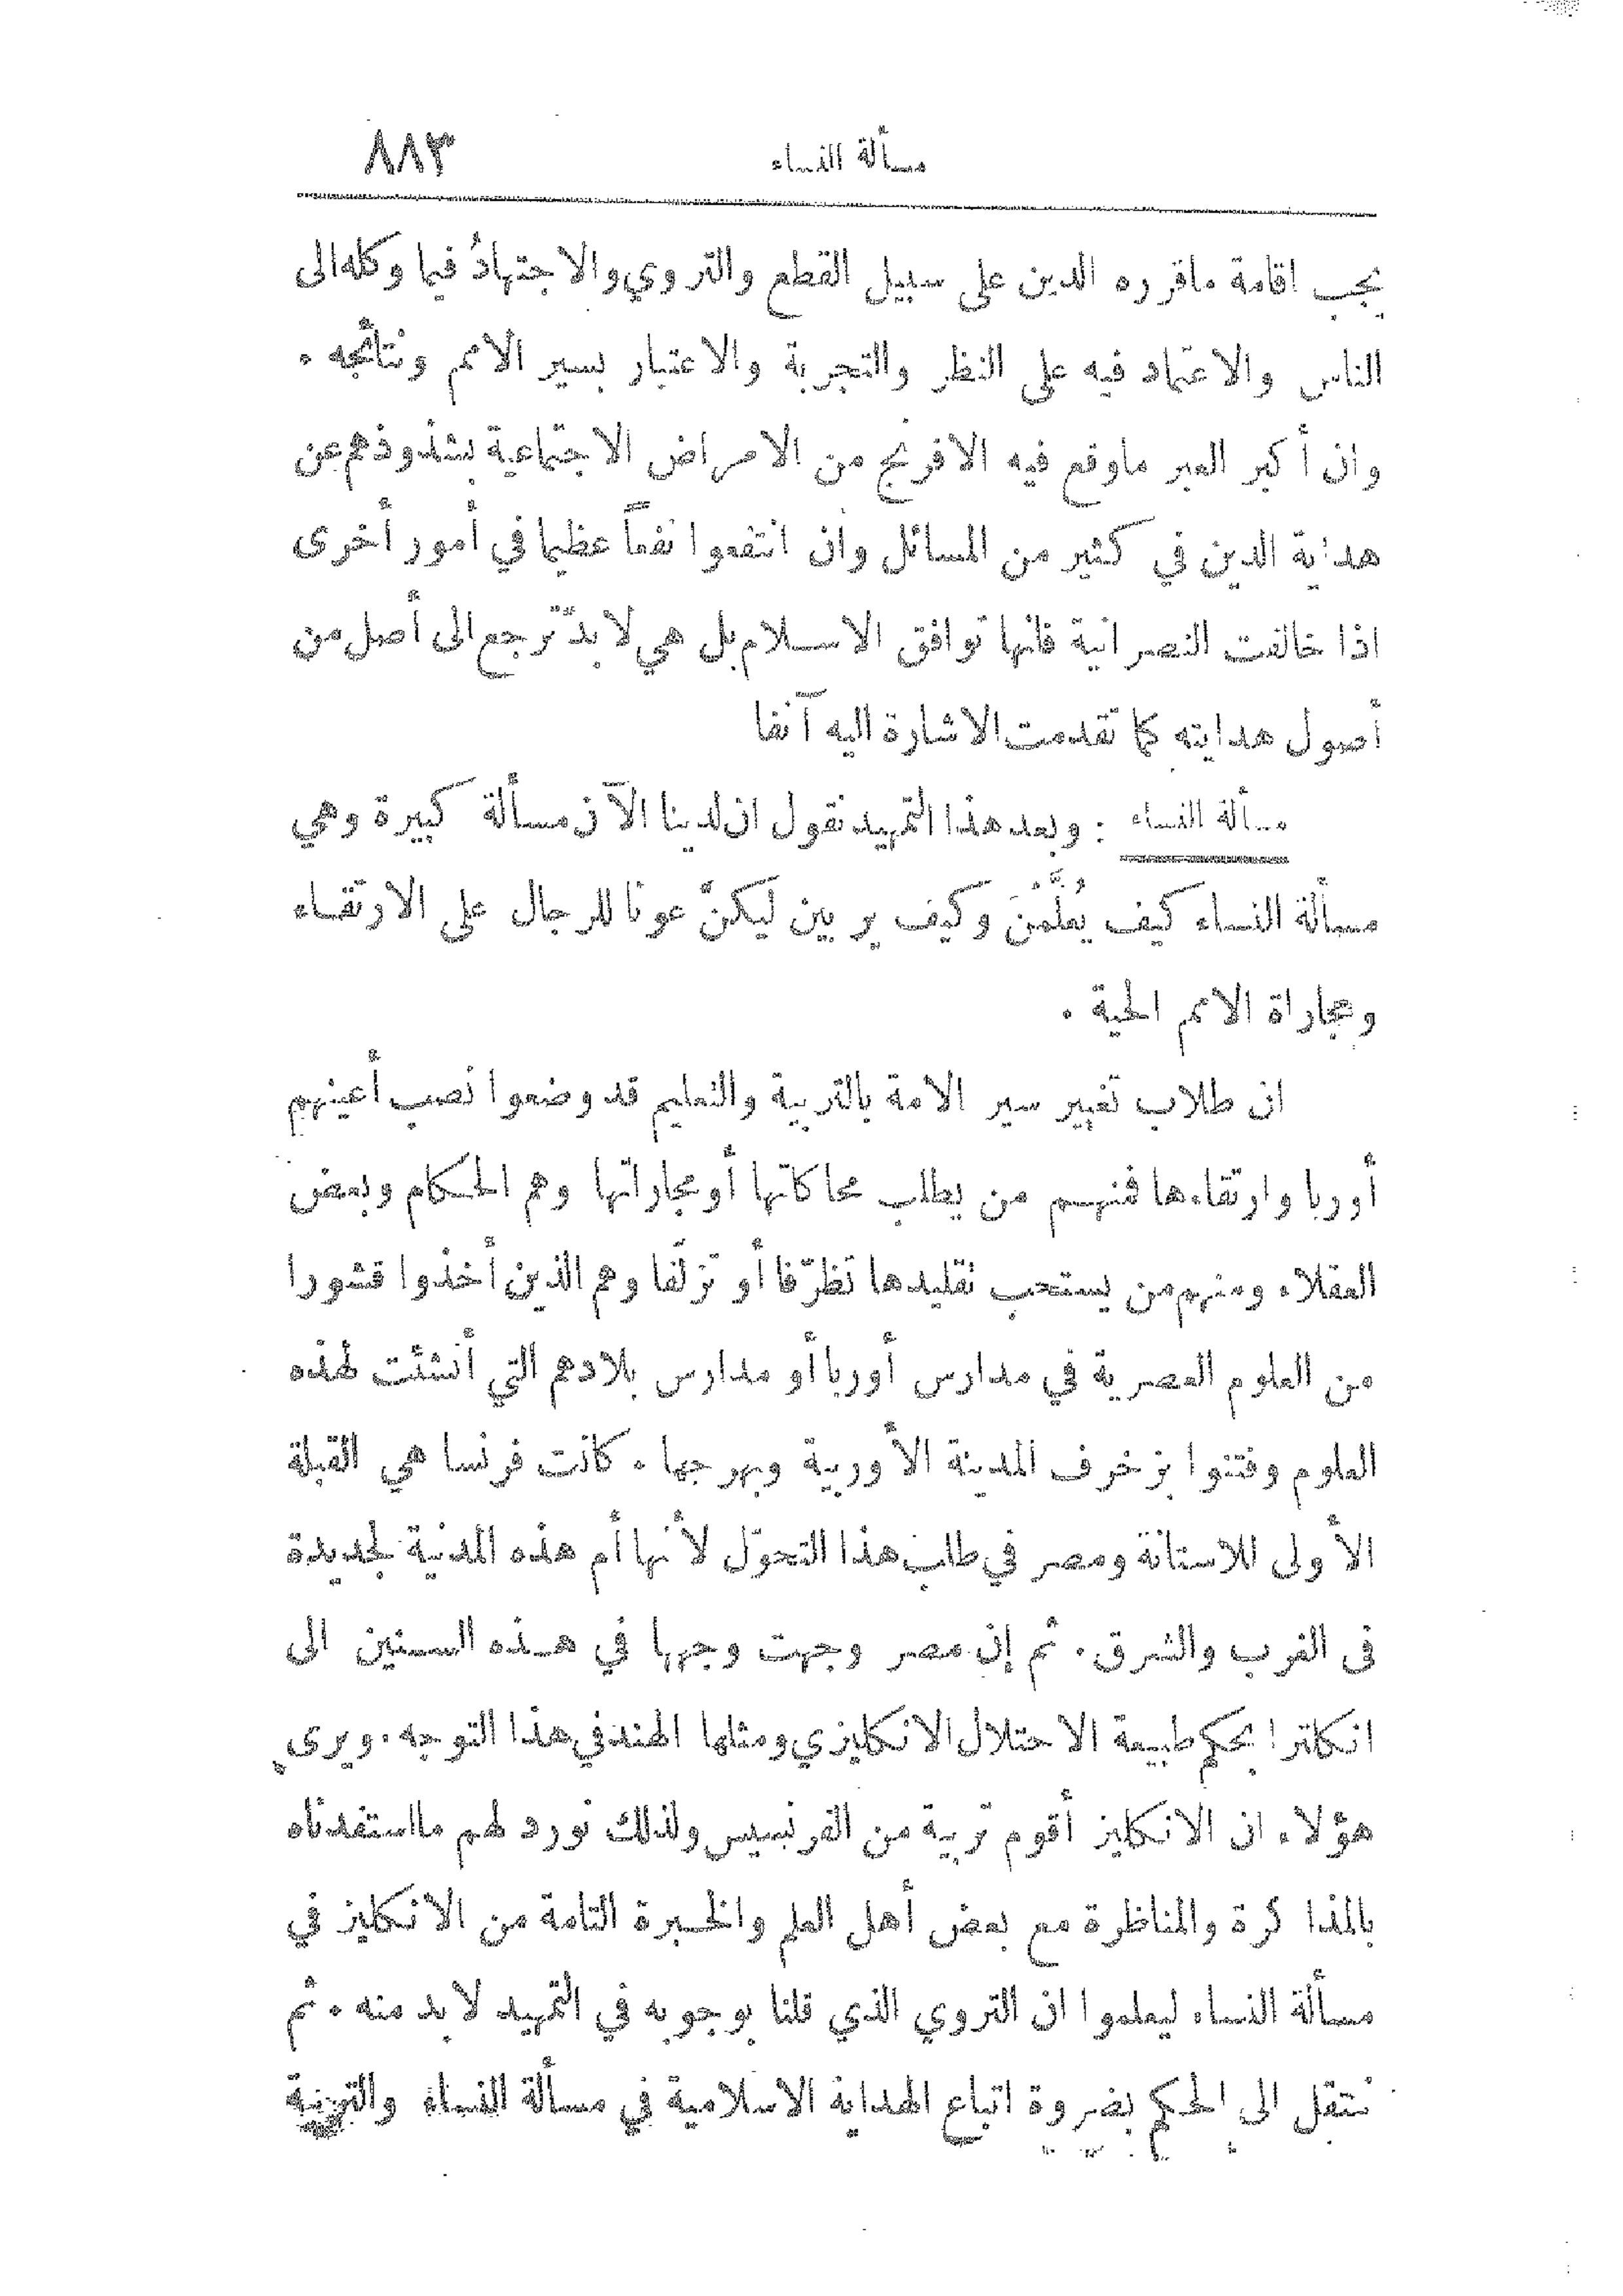 مسألة النساء ٨٨٣
يجب اقامة ماقرره الدين على سبيل القطع والتروي والاجتهادُ فيما وكله الى
الناس والاعتماد فيه على النظر والتجربة والاعتبار بسير الامم ونتائجه .
وان أكبر العبر ماوقع فيه الافرنج من الامراض الاجتماعية بشذوذهم عن
هداية الدين في كثير من المسائل وان انتفعوا نفعاً عظيما في أمور أخرى
اذا خالفت النصرانية فانها توافق الاسلام بل هي لا بدّ ترجع الى أصل من
أصول هدايته كما تقدمت الاشارة اليه آنفا
مسألة النساء : وبعد هذا التمهيد نقول ان لدينا الآن مسألة كبيرة وهي
مسألة النساء كيف يُعلَّمْنَ وكيف يربين ليكنّ عونا للرجال على الارتقاء
ومجاراة الامم الحية .
ان طلاب تغيير سير الامة بالتربية والتعليم قد وضعوا نصب أعينهم
أوربا وارتقاءها فمنهم من يطلب محاكاتها أو مجاراتها وهم الحكام وبعض
العقلاء ومنهم من يستحب تقليدها تظرّفا أو تزلّفا وهم الذين أخذوا قشورا
من العلوم العصرية في مدارس أوربا أو مدارس بلادهم التي أنشئت لهذه
العلوم وفتنوا بزخرف المدنية الأوربية وبهرجها . كانت فرنسا هي القبلة
الأولى للاستانة ومصر في طلب هذا التحوّل لأنها أم هذه المدنية لجديدة
فى الغرب والشرق . ثم إن مصر وجهت وجهها في هذه السنين الى
انكلترا بحكم طبيعة الاحتلال الانكليزي ومثلها الهند في هذا التوجه . ويرى
هؤلاء ان الانكليز أقوم تربية من الفرنسيس ولذلك نورد لهم مااستفدناه
بالمذاكرة والمناظرة مع بعض أهل العلم والخبرة التامة من الانكليز في
مسألة النساء ليعلموا ان التروي الذي قلنا بوجوبه في التمهيد لا بد منه . ثم
ننتقل الى الحكم بضروة اتباع الهداية الاسلامية في مسألة النساء والتربية